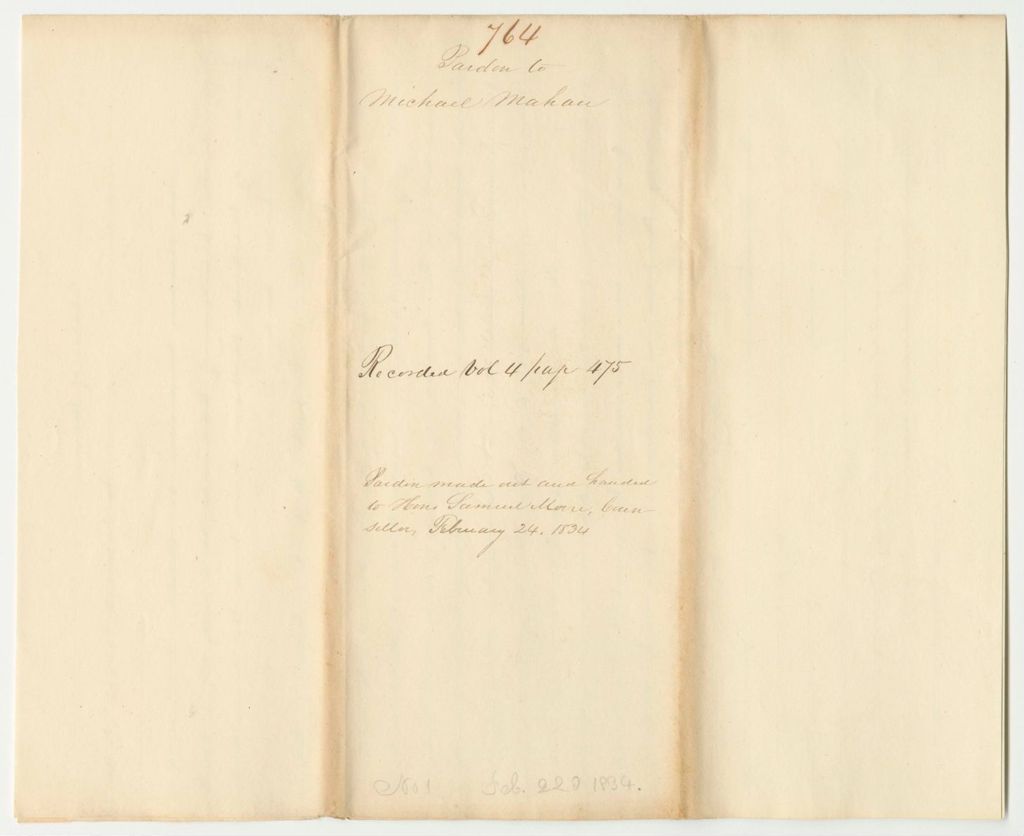 764
Pardon to
Michael Mahan
Recorded Vol 4 pap 475
Pardon made out and handed
to Hon. Samuel Moore, Coun-
sellor, February 24. 1834
No 1 Feb. 22d 1834.